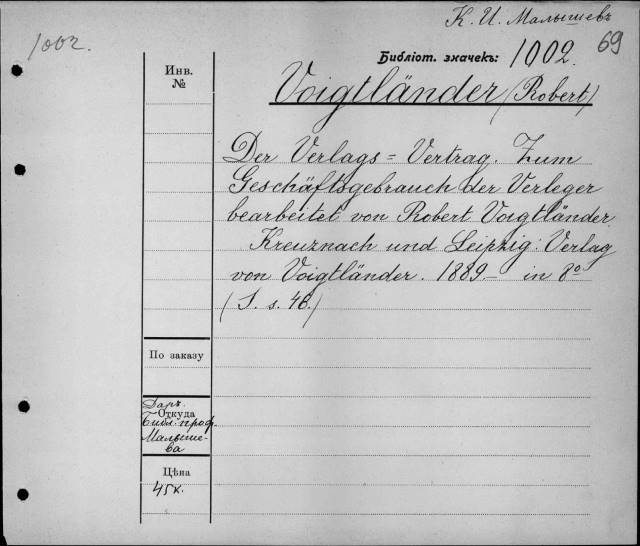 К. И. Малышевъ
1002.
Библіот. значекъ: 1002.
69
Инв.
№
Voigtländer (Robert)
Der Verlags=Vertrag. Zum
Geschäftsgebrauch der Verleger
bearbeitet von Robert Voigtländer.
Kreuznach und Leipzig: Verlag
von Voigtländer. 1889 – in 8º
(S. s. 46.)
По заказу
Даръ
Откуда
Библ. проф.
Малыше-
ва
Цѣна
45к.